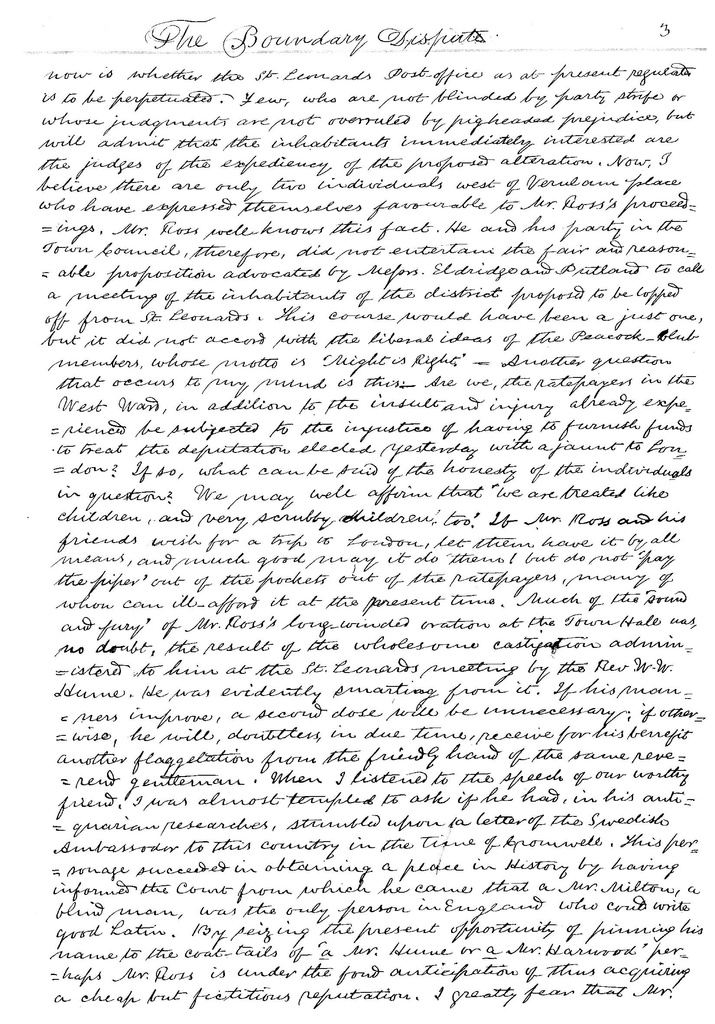 The Boundary Dispute. 3
now is whether the St. Leonards Post-office as at present regulated
is to be perpetuated. Few, who are not blinded by party strife or
whose judgments are not overruled by pigheaded prejudice, but
will admit that the inhabitants immediately interested are
the judges of the expediency of the proposed alteration. Now, I
believe there are only two individuals west of Verulam place
who have expressed themselves favourable to Mr. Ross's proceed=
=ings. Mr. Ross well knows this fact. He and his party in the
Town Council, therefore, did not entertain the fair and reason=
=able proposition advocated by Messrs. Eldridge and Putland to call
a meeting of the inhabitants of the district proposd to be lopped
off from St. Leonards. This course would have been a just one,
but it did not accord with the liberal ideas of the Peacock-Club
members, whose motto is "Might is Right." - Another question
that occurs to my mind is this:- Are we, the ratepayers in the
West Ward, in addition to the insult and injury already expe=
=rienced be subjected to the injustice of having to furnish funds
to treat the deputation elected yesterday with a jaunt to Lon=
=don? If so, what can be said of the honesty of the individuals
in question? We may well affirm that "we are treated like
children, and very scrubby children, too." If Mr. Ross and his
friends wish for a trip to London, let them have it by all
means, and much good may it do them! but do not 'pay
the piper' out of the pockets out of the ratepayers, many of
whom can ill-afford it at the present time. Much of the "sound
and fury" of Mr. Ross's long-winded oration at the Town Hall was,
no doubt, the result of the wholesome castigation admin=
=istered to him at the St. Leonards meeting by the Rev. W. W.
Hume. He was evidently smarting from it. If his man=
=ners improve, a second dose will be unnecessary; if other=
=wise, he will, doubtless, in due time, receive for his benefit
another flaggelation from the friendly hand of the same reve=
=rend gentleman. When I listened to the speech of our worthy
friend, I was almost tempted to ask if he had, in his anti=
=quarian researches, stumbled upon a letter of the Swedish
Ambassador to this country in the time of Cromwell. This per=
=sonage succeeded in obtaining a place in History by having
informed the Court from which he came that a Mr. Milton, a
blind man, was the only person in England who coud write
good Latin. By seizing the present opportunity of pinning his
name to the coat-tails of "a Mr. Hume or a Mr. Harwood" per=
=haps Mr. Ross is under the fond anticipation of thus acquiring
a cheap but fictitious reputation. I greatly fear that Mr.